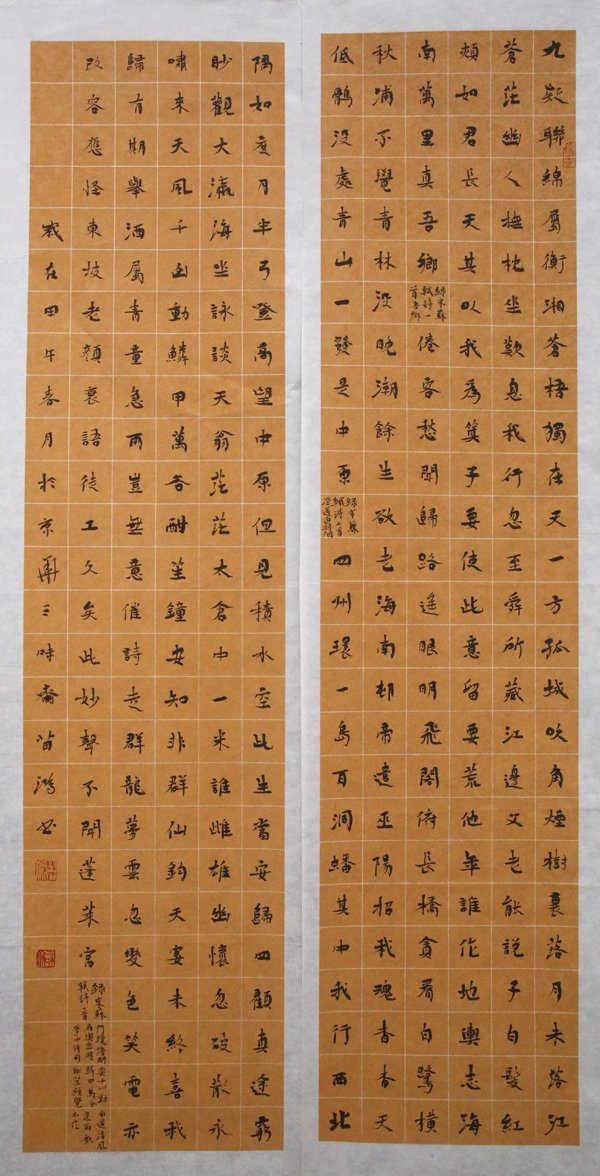 九疑聯綿屬衡湘蒼梧獨在天一方孤城吹角煙樹裏落月未落江
蒼茫幽人撫枕坐歎息我行忽至舜所藏江邊父老能說子白髮紅
頰如君長天其以我為箕子要使此意留要荒他年誰作地輿志海
南萬里真吾鄉
錄宋蘇
軾詩一
首吾鄉
倦客愁聞歸路遙眼明飛閣俯長橋貪看白鷺橫
秋浦不覺青林沒晚潮餘生欲老海南村帝遣巫陽招我魂杳杳天
低鶻沒處青山一發是中原
錄宋蘇
軾詩二首
四州環一島百洞蟠其中我行西北
隅如度月半弓登高望中原但見積水空此生當安歸四顧真途窮
眇觀大瀛海坐詠談天翁茫茫太倉中一米誰雌雄幽懷忽破散永
嘯來天風千山動鱗甲萬谷酣笙鐘安知非群仙鈞天宴未終喜我
歸有期舉酒屬青童急雨豈無意催詩走群龍夢雲忽變色笑電亦
改容應怪東坡老顏衰語徒工久矣此妙聲不聞蓬萊宮
錄宋蘇
軾詩一首
歲在甲午春月於京華三味齋苗鴻書